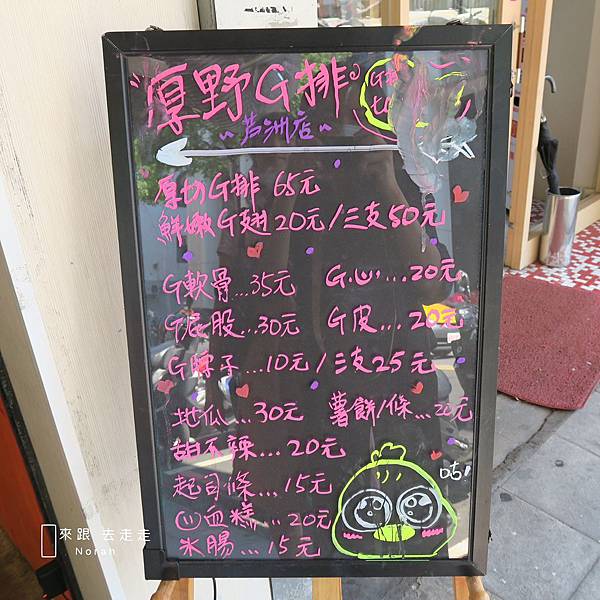 厚野G排
~芦洲店~
厚切G排 65元
鮮嫩G翅 20元/三支50元
G軟骨...35元 G心...20元
G屁股...30元 G皮...20元
G脖子...10元/三支25元
地瓜...30元 薯餅/條...20元
胡不辣...20元
起司條...15元
山血糕...20元
米腸...15元
咕!
來跟 去走走
Norah